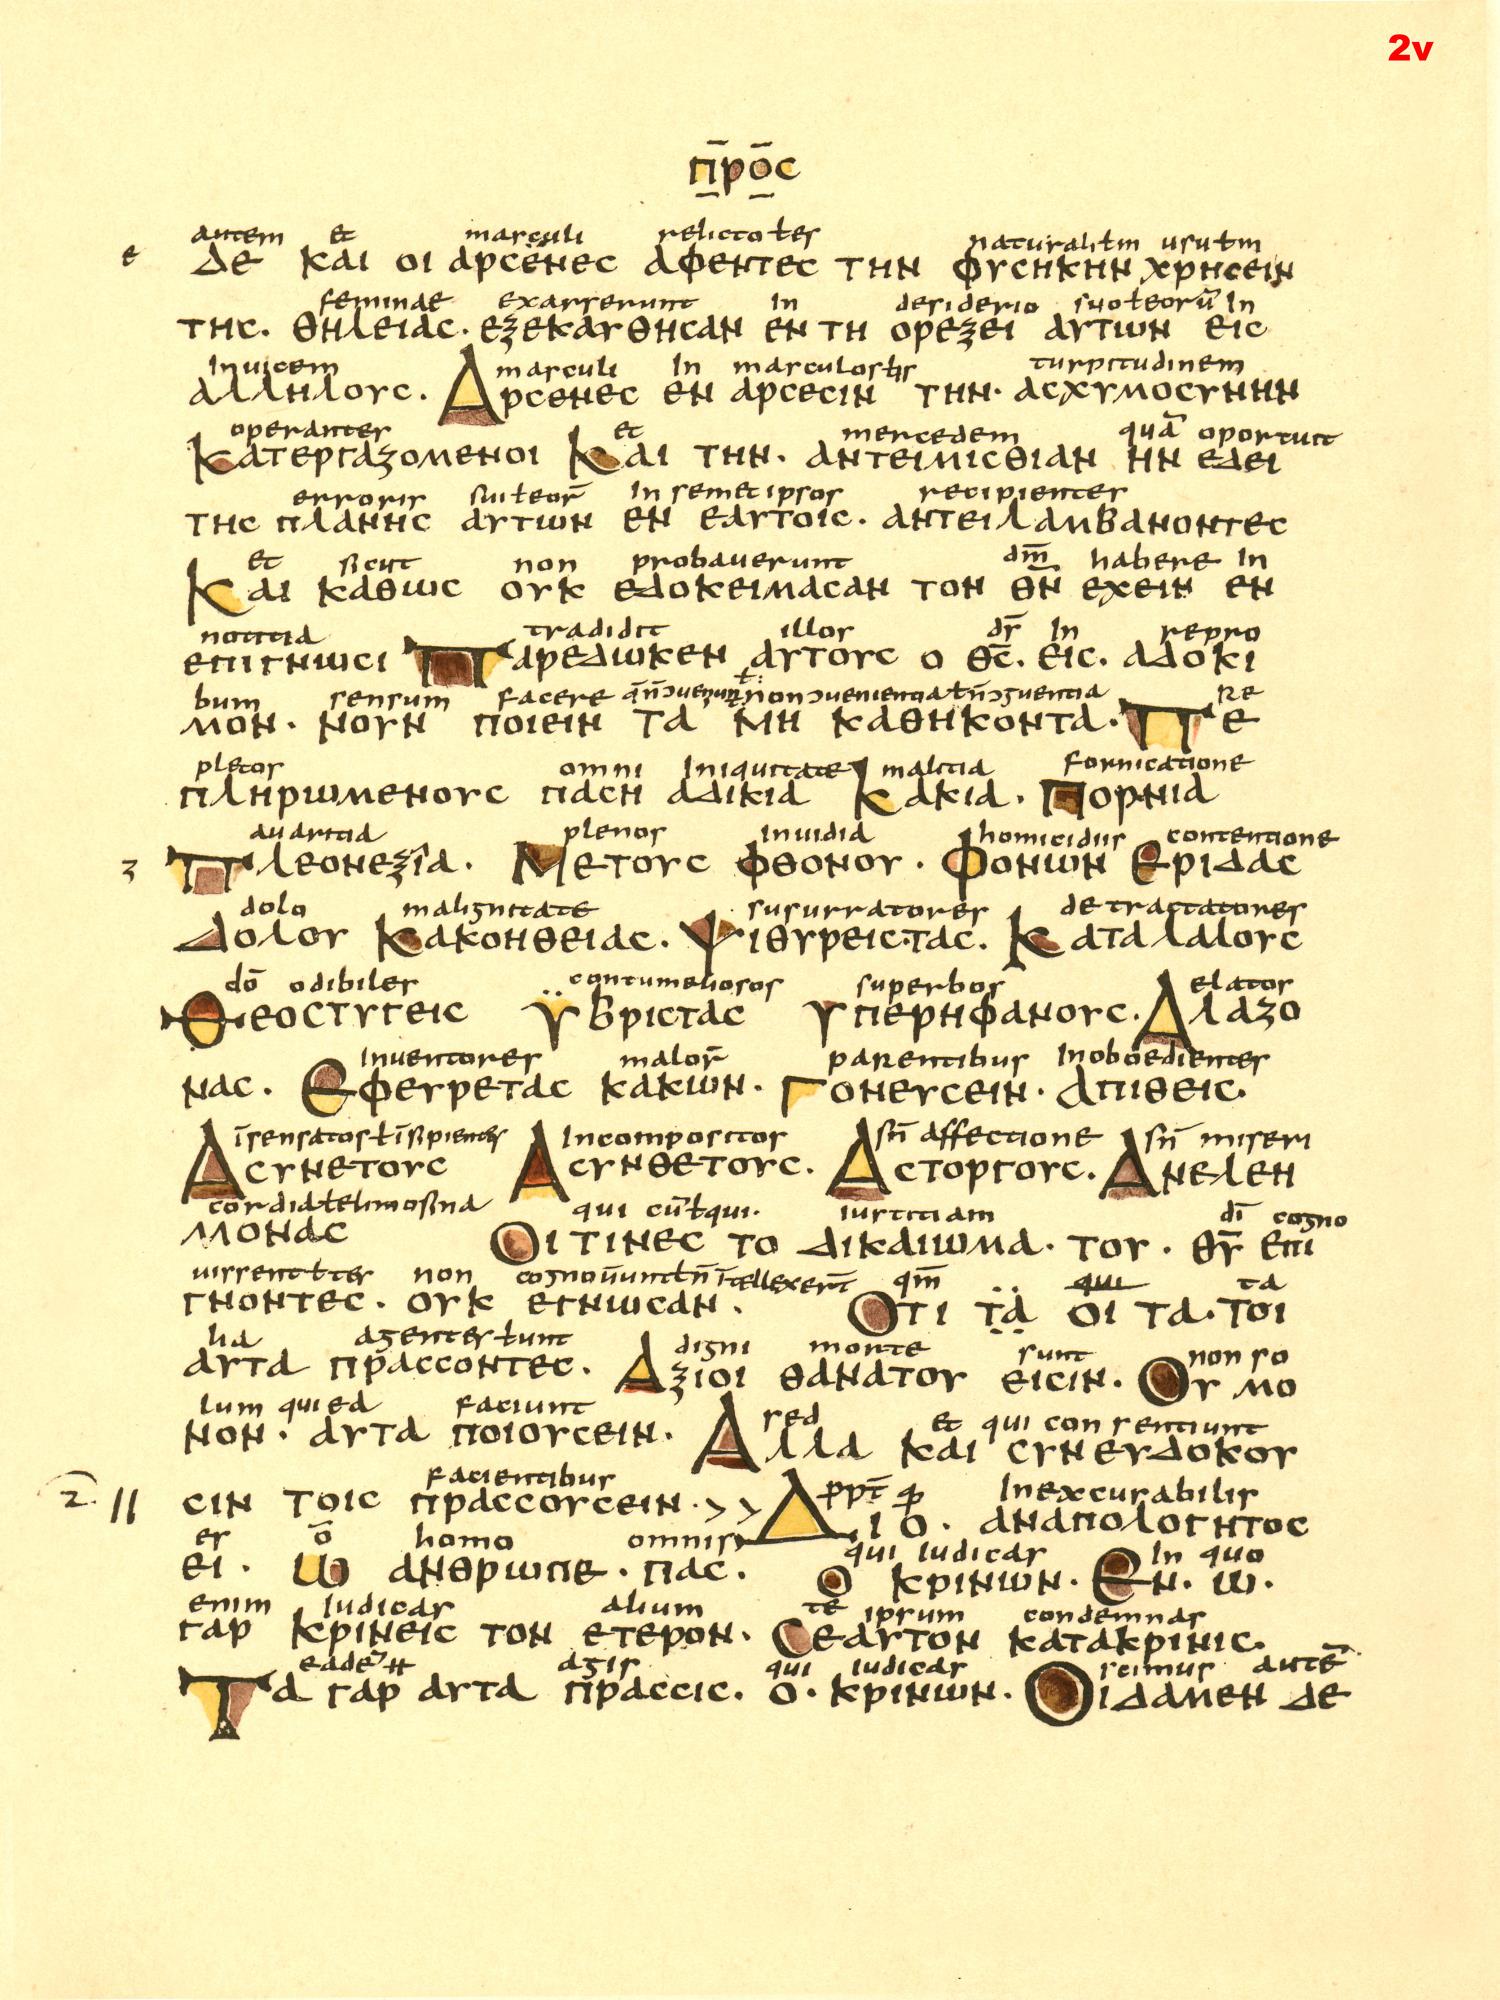 2v
π̄ρο̄ς
autem et masculi relicto ł es naturalem usum
ε δε και οι αρσενες αφεντες την φυσηκην χρησειν
feminae exarserunt in desiderio suo ł eorū in
της. θηλειας. εξεκαυθησαν εν τη ορεξει αυτων εις
invicem masculi in masculos turpitudinem
αλληλους. Αρσενες εν αρσεσιν την. ασχυμοσυνην
operantes et mercedem quā oportuit
Κατεργαζομενοι Και την. αντειμισθιαν ην εδει
erroris sui ł eor̄ in semet ipsos recipientes
της πλανης αυτων εν εαυτοις. αντειλαμβανοντες
et sicut non probaverunt dm̄ habere in
Και καθως ουκ εδοκειμασαν τον θ̄ν̄ εχειν εν
notitia tradidit illos ds̄ in repro
επιγνωσι Παρεδωκεν αυτους ο θ̄ς̄. εις. αδοκι
bum sensum facere non re
μον. νουν ποιειν τα μη καθηκοντα. Πε
pletos omni iniquitate malitia fornicatione
πληρωμενους παση αδικια Κακια. Πορνια
avaritia plenos invidia homicidiis contentione
ζ Πλεονεξια. Μετους φθονου. Φονων Εριδας
dolo malignitate susurratores detractatores
Δολου Κακοηθειας. Ψιθυρεις·τας. Καταλαλους
dō odibiles contumeliosos superbos elatos
Θεοστυγεις Ϋβριστας Υπερηφανους. Αλαζο
inventores malor̄ parentibus inoboedientes
νας. Εφευρετας κακων. Γονευσειν. Απιθεις.
īsensatos ł īsipientes incompositos sn̄ affectione sn̄ miseri
Ασυνετους Ασυνθετους. Αστοργους. Ανελεη
cordia ł elimosina qui cū ł qui. iustitiam dī cogno
μονας Οιτινες το δικαιωμα. του. θ̄ῡ επι
non qm̄ qui ta
γνοντες. ουκ εγνωσαν. Οτι τα οι τα. τοι
lia agentes ł unt digni morte sunt non so
αυτα πρασσοντες. Αξιοι θανατου εισιν. Ου μο
lum qui ea faciunt sed et qui consentiunt
νον. αυτα ποιουσειν. Αλλα και συνευδοκου
facientibus ppt̄ inexcusabilis
2. σιν τοις πρασσουσειν. > > Διο. αναπολογητος
es ō homo omnis qui iudicas in quo
ει. ω ανθρωπε. πας. ο κρινων. Εν. ω.
enim iudicas alium te ipsum condemnas
γαρ κρινεις τον ετερον. Σεαυτον κατακρινις.
eadē agis qui iudicas scimus autē
Τα γαρ αυτα πρασσις. ο. κρινων. Οιδαμεν δε